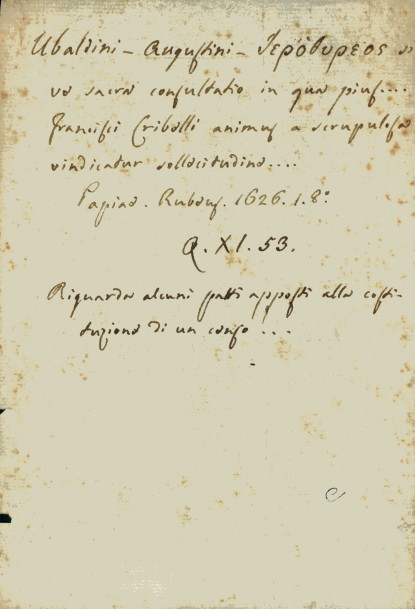 Ubaldini - Augustini - Ἱερόθυρεος si
va sacra consultatio in qua pius....
Francisci Cribelli animus a scrupulosa
vindicatur sollecitudine....
Papiae. Rubeus. 1626. 1. 8º
Q. XI. 53.
Riguarda alcuni patti apposti alla costi-
tuzione di un censo ...